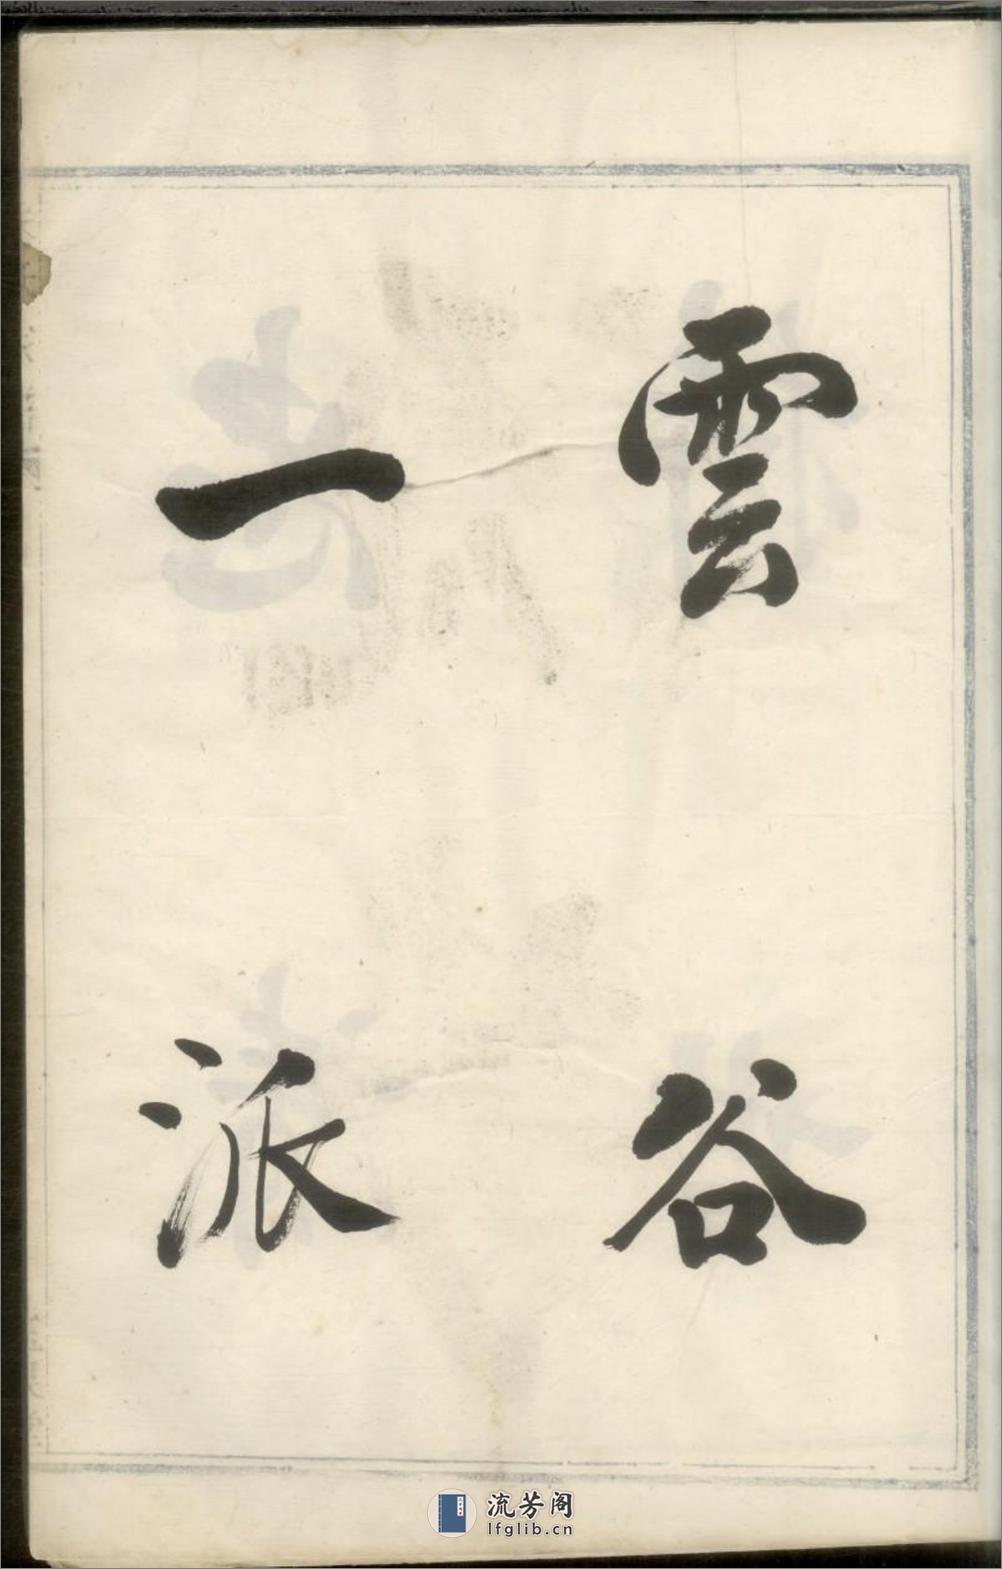 雲谷
一派
流芳阁
lfglib.cn